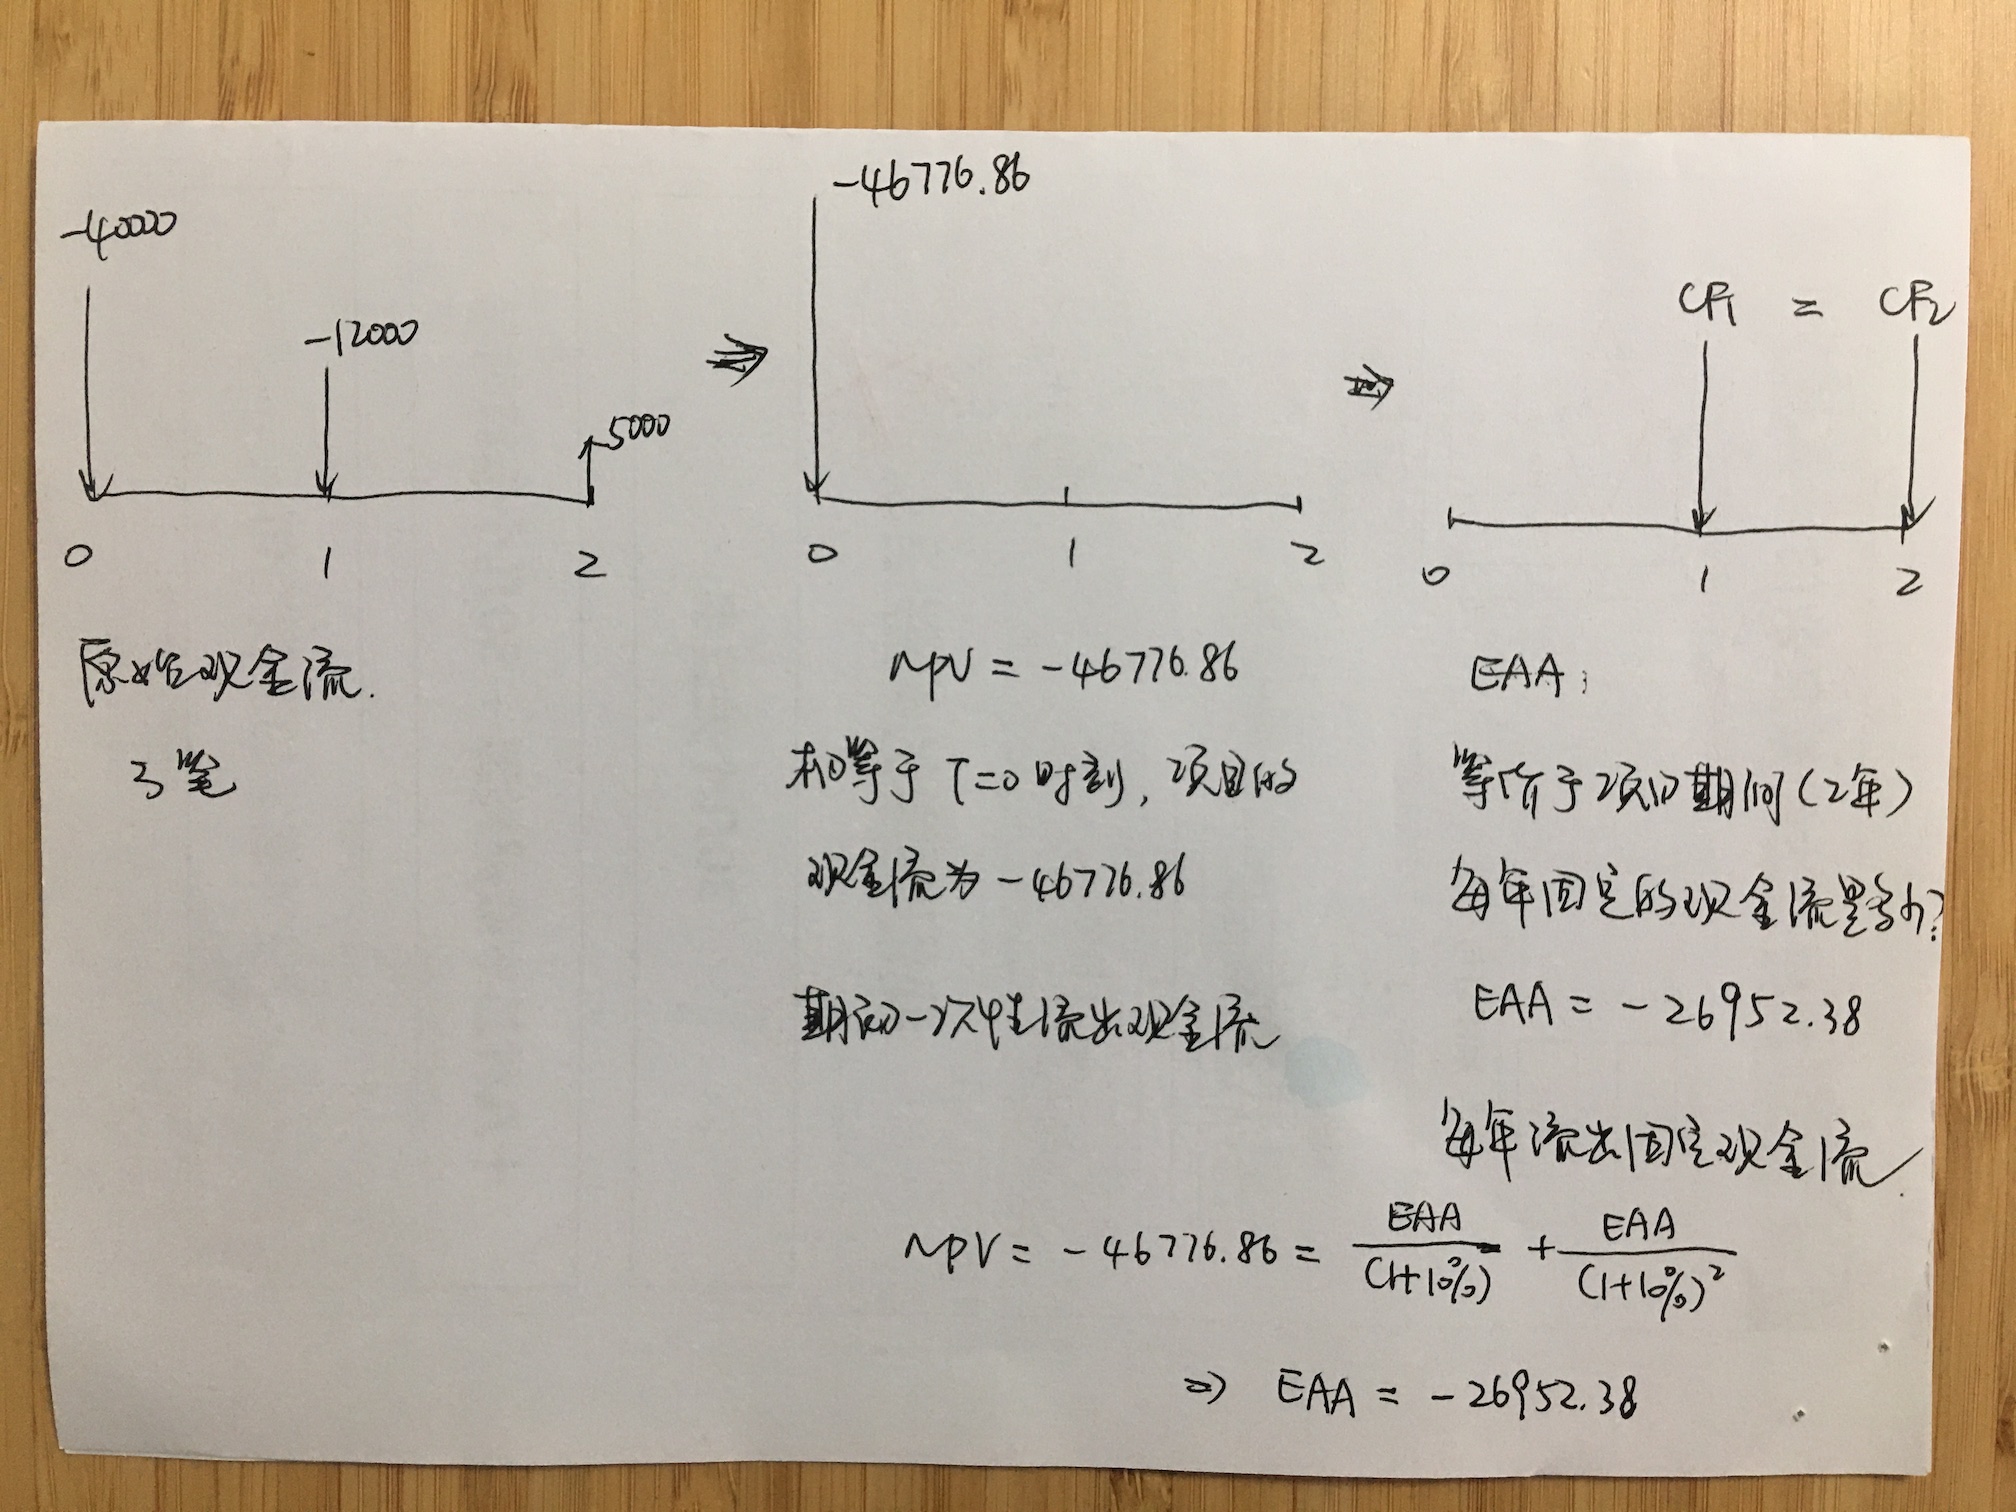 -40000
-12000
5000
0 1 2
原始现金流.
3笔
-46776.86
0 1 2
NPV = -46776.86
相等于 T=0时刻, 项目的
现金流为 -46776.86
期初一次性流出现金流
CF1 = CF2
0 1 2
EAA:
等价于项目期间(2年)
每年固定的现金流是多少?
EAA = -26952.38
每年流出固定现金流.
NPV = -46776.86 = EAA/(1+10%) + EAA/(1+10%)²
⇒ EAA = -26952.38